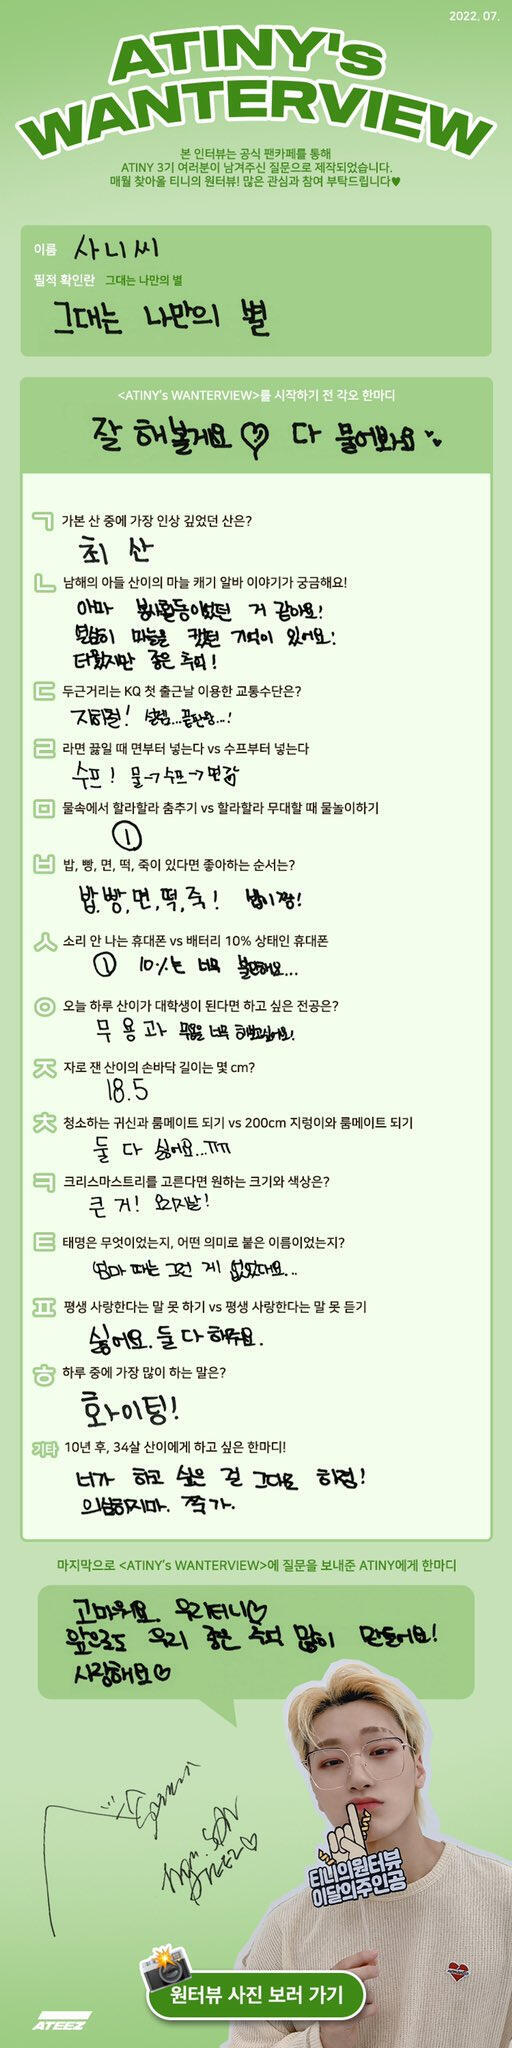 2022. 07.
ATINY's
WANTERVIEW
본 인터뷰는 공식 팬카페를 통해
ATINY 3기 여러분이 남겨주신 질문으로 제작되었습니다.
매월 찾아올 티니의 원터뷰! 많은 관심과 참여 부탁드립니다♥
이름 사니씨
필적 확인란 그대는 나만의 별
그대는 나만의 별
<ATINY's WANTERVIEW>를 시작하기 전 각오 한마디
잘 해볼게요♡ 다 물어봐요
ㄱ 가본 산 중에 가장 인상 깊었던 산은?
최 산
ㄴ 남해의 아들 산이의 마늘 캐기 알바 이야기가 궁금해요!
아마 봉사활동이었던 거 같아요!
열심히 마늘을 캤던 기억이 있어요!
더웠지만 좋은 추억!
ㄷ 두근거리는 KQ 첫 출근날 이용한 교통수단은?
지하철! 설렘...끝판왕...!
ㄹ 라면 끓일 때 면부터 넣는다 vs 수프부터 넣는다
수프! 물→수프→면
ㅁ 물속에서 할라할라 춤추기 vs 할라할라 무대할 때 물놀이하기
①
ㅂ 밥, 빵, 면, 떡, 죽이 있다면 좋아하는 순서는?
밥,빵,면,떡,죽! 밥이 짱!
ㅅ 소리 안 나는 휴대폰 vs 배터리 10% 상태인 휴대폰
① 10%는 너무 불안해요...
ㅇ 오늘 하루 산이가 대학생이 된다면 하고 싶은 전공은?
무용과 무용을 너무 해보고싶어요!
ㅈ 자로 잰 산이의 손바닥 길이는 몇 cm?
18.5
ㅊ 청소하는 귀신과 룸메이트 되기 vs 200cm 지렁이와 룸메이트 되기
둘 다 싫어요...ㅠㅠ
ㅋ 크리스마스트리를 고른다면 원하는 크기와 색상은?
큰 거! 오리지날!
ㅌ 태명은 무엇이었는지, 어떤 의미로 붙은 이름이었는지?
엄마 때는 그런 게 없었대요...
ㅍ 평생 사랑한다는 말 못 하기 vs 평생 사랑한다는 말 못 듣기
싫어요. 둘 다 해줘요.
ㅎ 하루 중에 가장 많이 하는 말은?
화이팅!
기타 10년 후, 34살 산이에게 하고 싶은 한마디!
너가 하고 싶은 걸 그대로 하렴!
의심하지마. 쭉 가.
마지막으로 <ATINY's WANTERVIEW>에 질문을 보내준 ATINY에게 한마디
고마워요 우리티니♡
앞으로도 우리 좋은 추억 많이 만들어요!
사랑해요♡
SAN
ATEEZ♡
티니의원터뷰
이달의주인공
원터뷰 사진 보러 가기
ATEEZ